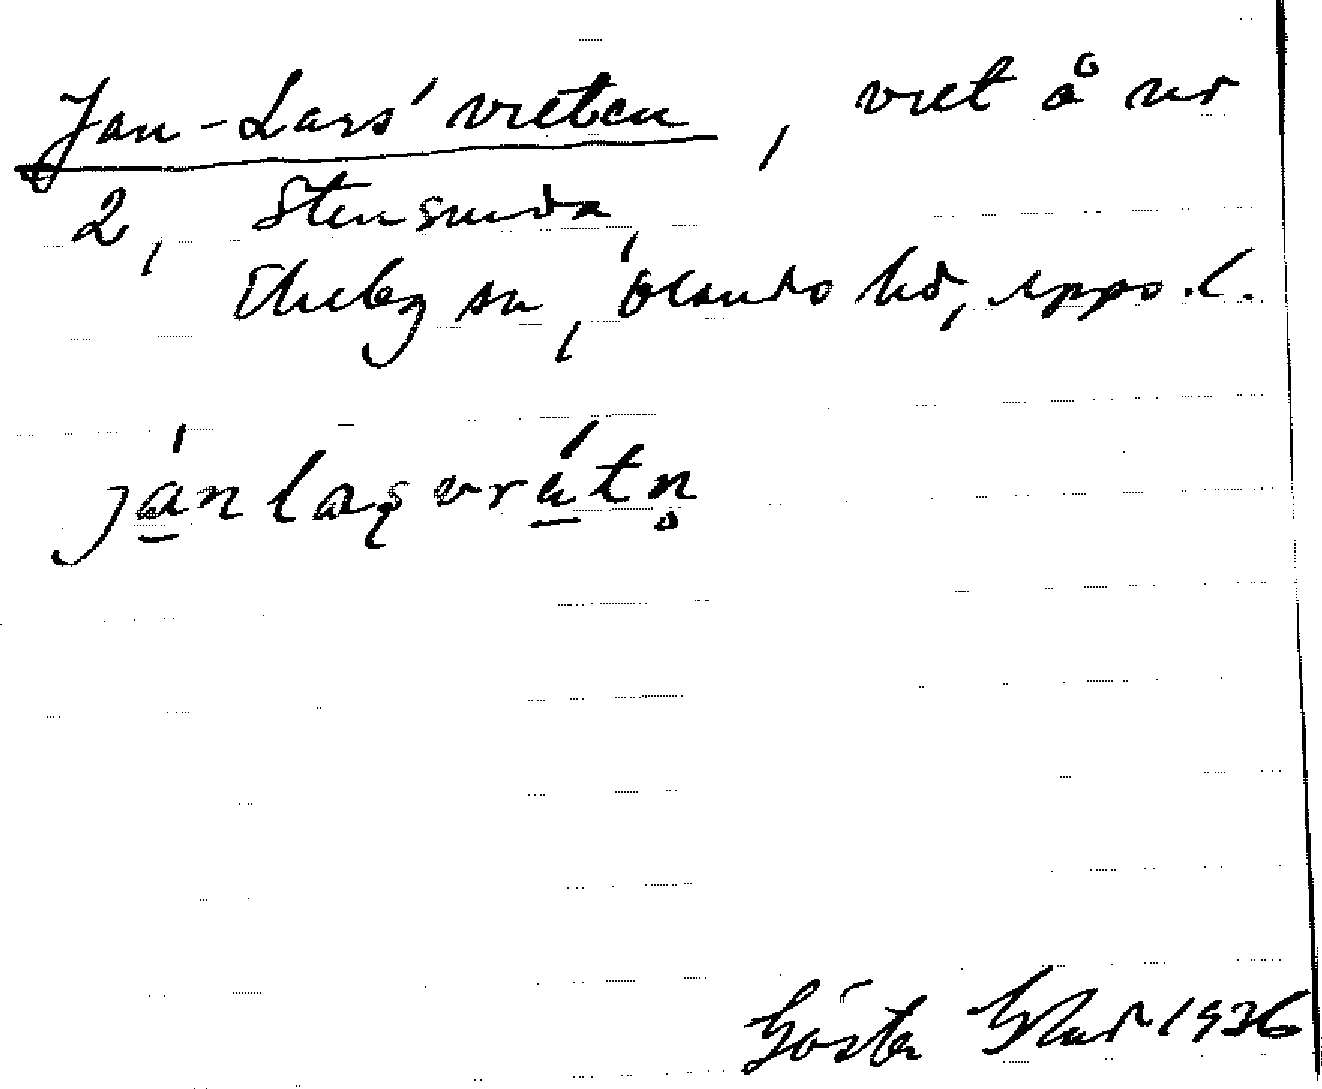 Jan-Lars' vreten, vret å nr
2, Stensunda,
Ekeby sn, Olands hd, Upps. l.
jánlaʂvrátn̥
Gösta 1936